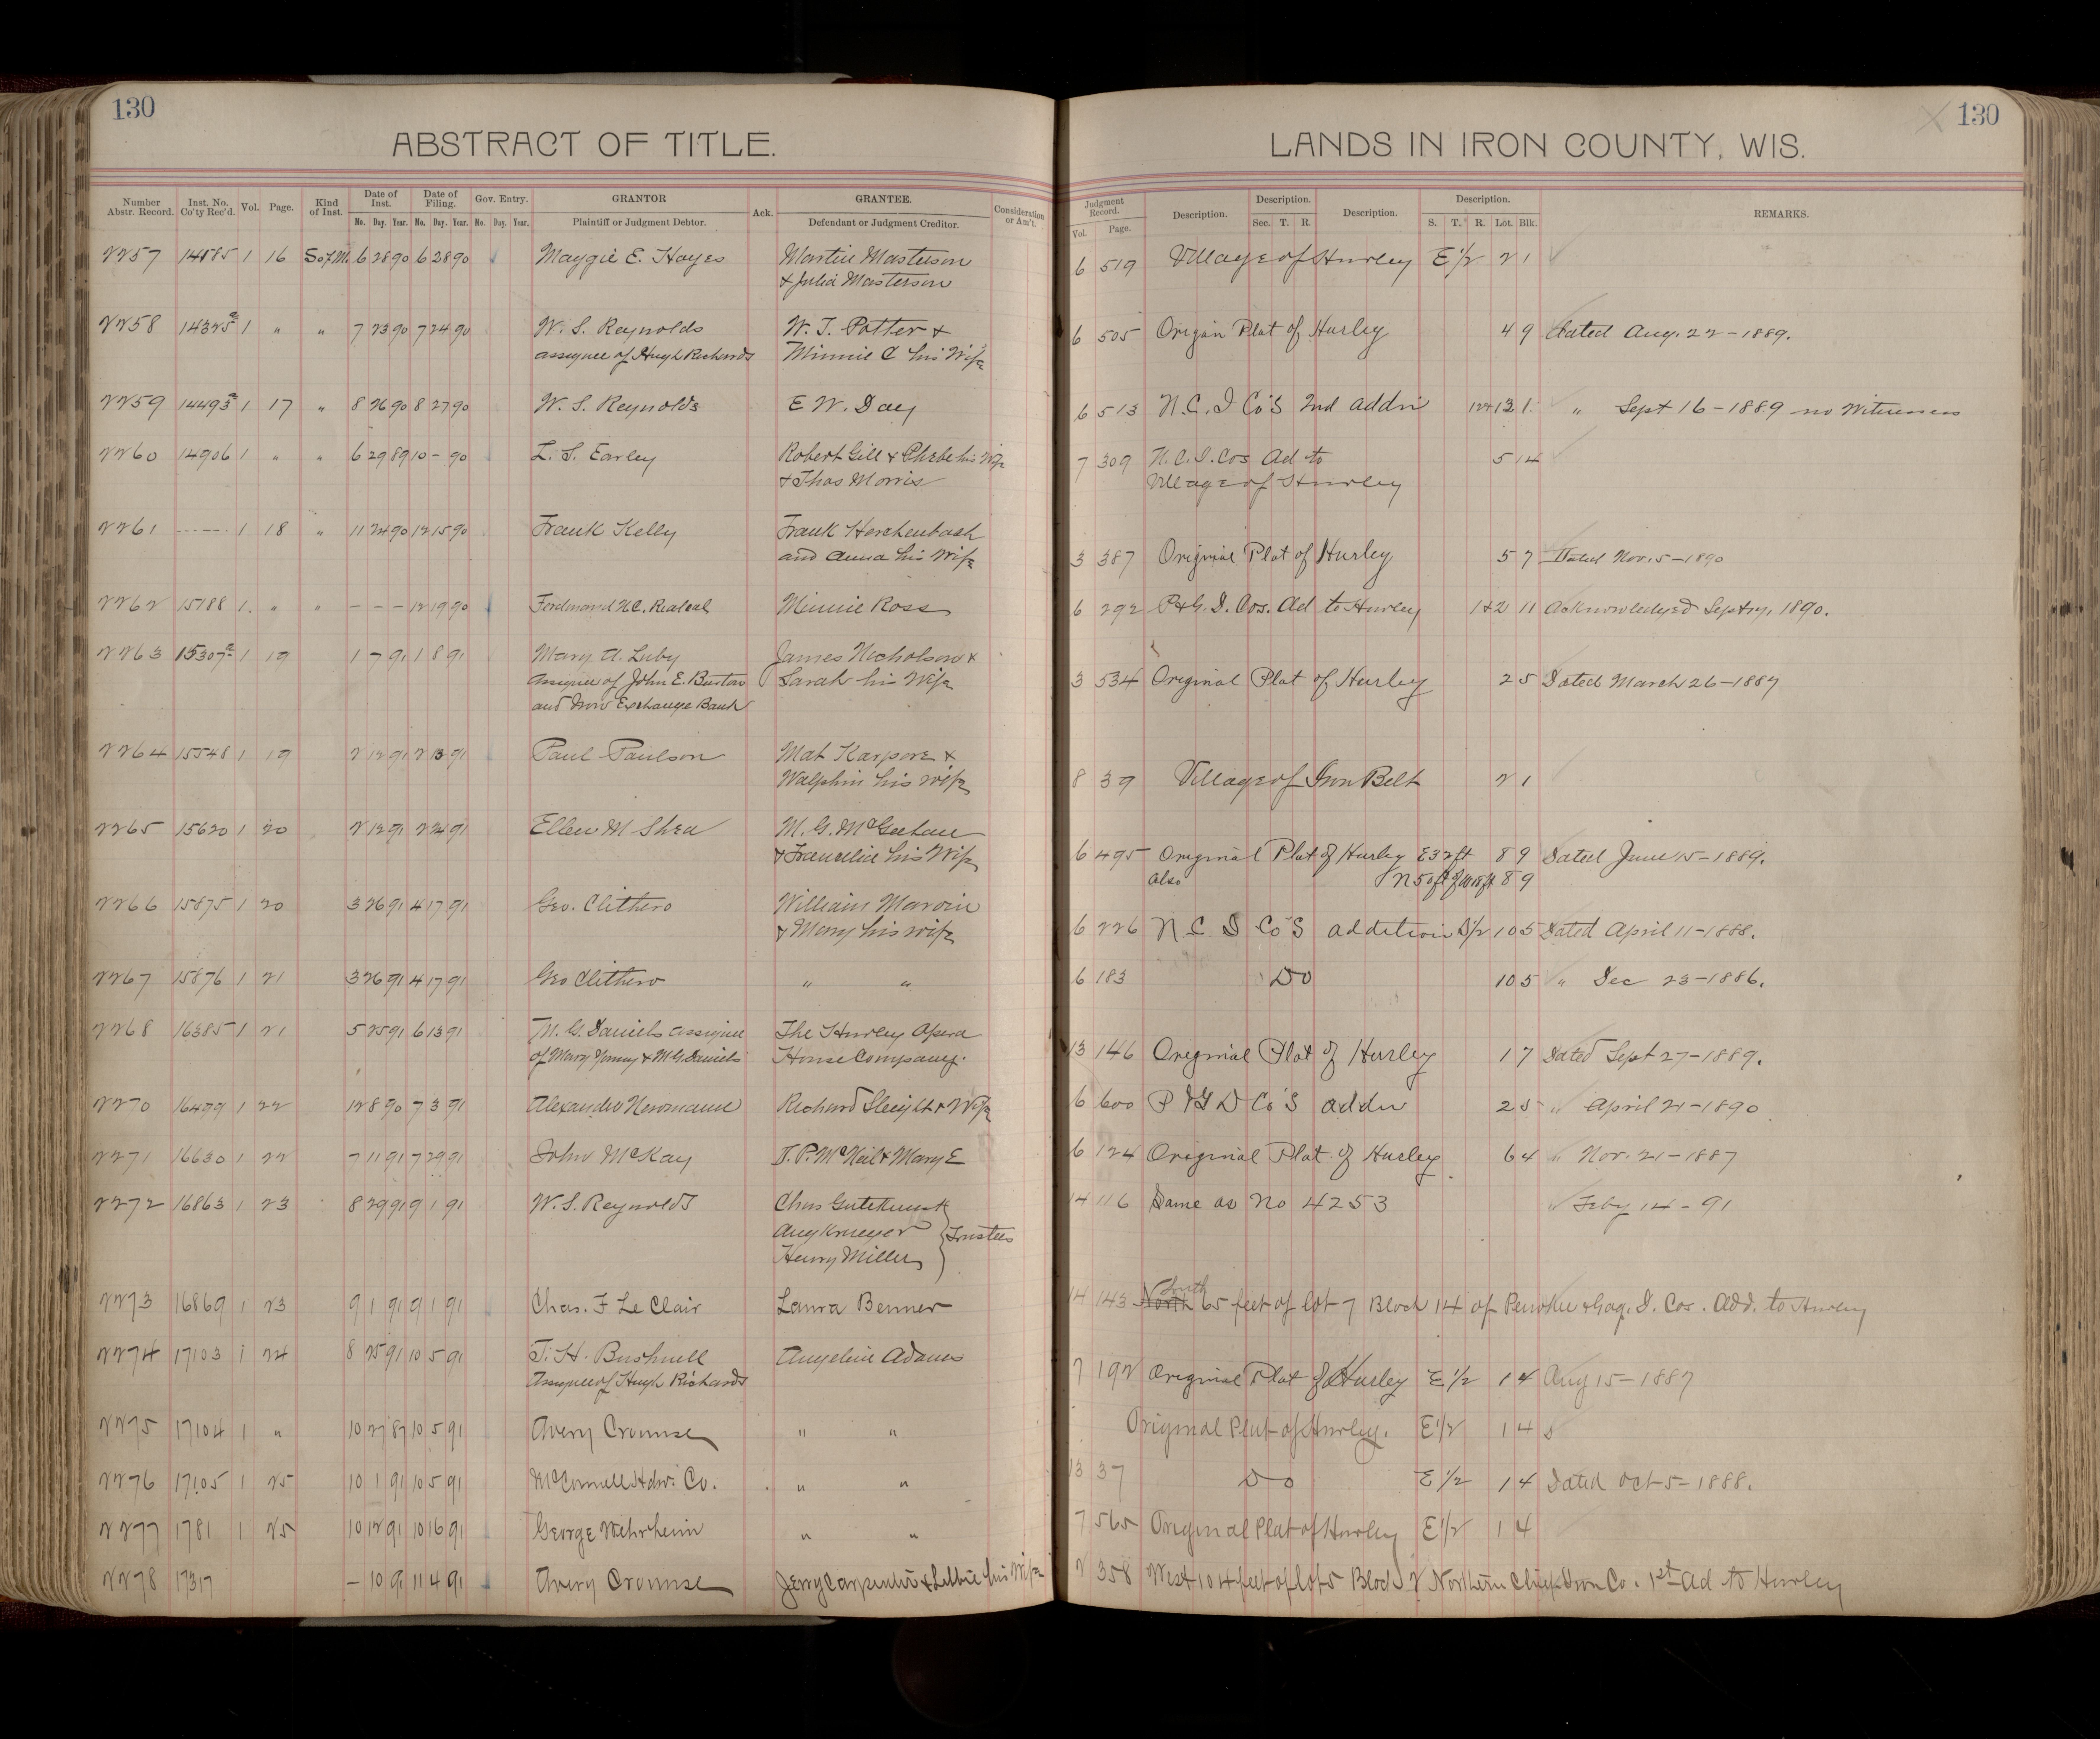 130
ABSTRACT OF TITLE.
Number Abstr. Record. Inst. No. Co'ty Rec'd. Vol. Page. Kind of Inst. Date of Inst. Mo. Day. Year. Date of Filing. Mo. Day. Year. Gov. Entry. Mo. Day. Year. GRANTOR Plaintiff or Judgment Debtor. Ack. GRANTEE. Defendant or Judgment Creditor. Consideration or Am't.
2257 14885 1 16 S of M. 6 28 90 6 28 90 Maggie E. Hayes Martin Masterson
& Julia Masterson
2258 14325 1 " " 7 23 90 7 24 90 W. S. Reynolds W. T. Potter &
assignee of Hugh Richards Minnie C his Wife
2259 14493 1 17 " 8 26 90 8 27 90 W. S. Reynolds E W. Day
2260 14906 1 " " 6 29 89 10 - 90 L. S. Earley Robert Gill & Phebe his Wife
& Thos Morris
2261 ----- 1 18 " 11 24 90 12 15 90 Frank Kelly Frank Herchenbach
and Anna his Wife
2262 15188 1. " " - - - 12 19 90 Minnie Ross
2263 15307 1 19 1 7 91 1 8 91 Mary A. Luby James Nicholson &
Assignee of John E. Burton Sarah his Wife
and Iron Exchange Bank
2264 15548 1 19 2 12 91 2 13 91 Paul Paulson Mat Karpore &
his wife
2265 15620 1 20 2 12 91 2 24 91 Ellen M Shea M. G. McGeehan
& his Wife
2266 15875 1 20 3 26 91 4 17 91 Geo. Clithero William Marvin
& Mary his wife
2267 15876 1 21 3 26 91 4 17 91 Geo Clithero " "
2268 16385 1 21 5 25 91 6 13 91 M. G. Daniels assignee The Hurley Opera
of Mary Young & M. G. Daniels House Company.
2270 16499 1 22 12 8 90 7 3 91 Alexander Newmann Richard Sleight & Wife
2271 16630 1 22 7 11 91 7 29 91 John McKay J. P. McNeil & Mary E
2272 16863 1 23 8 29 91 9 1 91 W. S. Reynolds Chas Gutekunst
Aug Krueger } Trustees
Henry Miller
2273 16869 1 23 9 1 91 9 1 91 Chas. F Le Clair Laura Benner
2274 17103 1 24 8 25 91 10 5 91 T. H. Bushnell Angeline Adams
Assignee of Hugh Richards
2275 17104 1 " 10 27 87 10 5 91 Avery Crounse " "
2276 17105 1 25 10 1 91 10 5 91 McConnell Hdw. Co. " "
2277 1781 1 25 10 12 91 10 16 91 George Wehrheim " "
2278 17317 - 10 91 11 4 91 Avery Crounse Jerry Carpenter & Libbie his Wife
130
LANDS IN IRON COUNTY, WIS.
Judgment Record. Vol. Page. Description. Description. Sec. T. R. Description. Description. S. T. R. Lot. Blk. REMARKS.
6 519 Village of Hurley E 1/2 2 1
6 505 Origin Plat of Hurley 4 9 Dated Aug. 22 - 1889.
6 513 N. C. I Co's 2nd addn 12 & 13 1 " Sept 16 - 1889 no Witnesses
7 309 N. C. I. Cos Ad to 5 14
Village of Hurley
3 387 Original Plat of Hurley 5 7 Dated Nov. 5 - 1890
6 292 P & G. I. Cos. Ad to Hurley 1 & 2 11 Acknowledged Sept 17, 1890.
3 534 Original Plat of Hurley 2 5 Dated March 26 - 1887
8 39 Village of Iron Belt 2 1
6 495 Original Plat of Hurley E 32 ft 8 9 Dated June 15 - 1889.
also N 50 ft of W 18 ft 8 9
6 226 N. C I Co's addition S 1/2 10 5 Dated April 11 - 1888.
6 183 Do 10 5 " Dec 23 - 1886.
13 146 Original Plat of Hurley 1 7 Dated Sept 27 - 1889.
6 600 P & G I Co's addn 2 5 " April 21 - 1890
6 124 Original Plat of Hurley 6 4 " Nov. 21 - 1887
14 116 Same as No 4253 " Feby 14 - 91
South
14 143 North 65 feet of lot 7 Block 14 of Penokee & Gog. I. Cos. Add. to Hurley
7 192 Original Plat of Hurley E 1/2 1 4 Aug 15 - 1887
Original Plat of Hurley. E 1/2 1 4
13 37 Do E 1/2 1 4 Dated Oct 5 - 1888.
7 565 Original Plat of Hurley E 1/2 1 4
2 358 West 104 feet of lot 5 Block 2 Northern Chief Iron Co. 1st Ad to Hurley